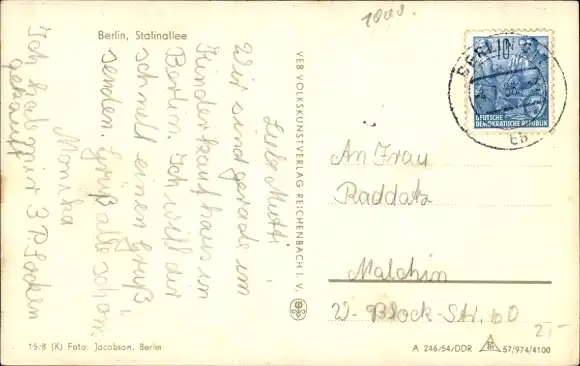 1000.
Berlin, Stalinallee
Liebe Mutti!
Wir sind gerade im
Kinderkaufhaus in
Berlin. Ich will dir
schnell einen Gruß
senden. Grüß alle schön.
Monika
Ich hab mir 3 P Socken
gekauft
VEB VOLKSKUNSTVERLAG REICHENBACH I. V.
BERLIN
DEUTSCHE
DEMOKRATISCHE REPUBLIK
An Frau
Raddatz
Malchin
W-Block-Str. 10
2,-
15/8 (K) Foto: Jacobson, Berlin
A 246/54/DDR 57/974/4100